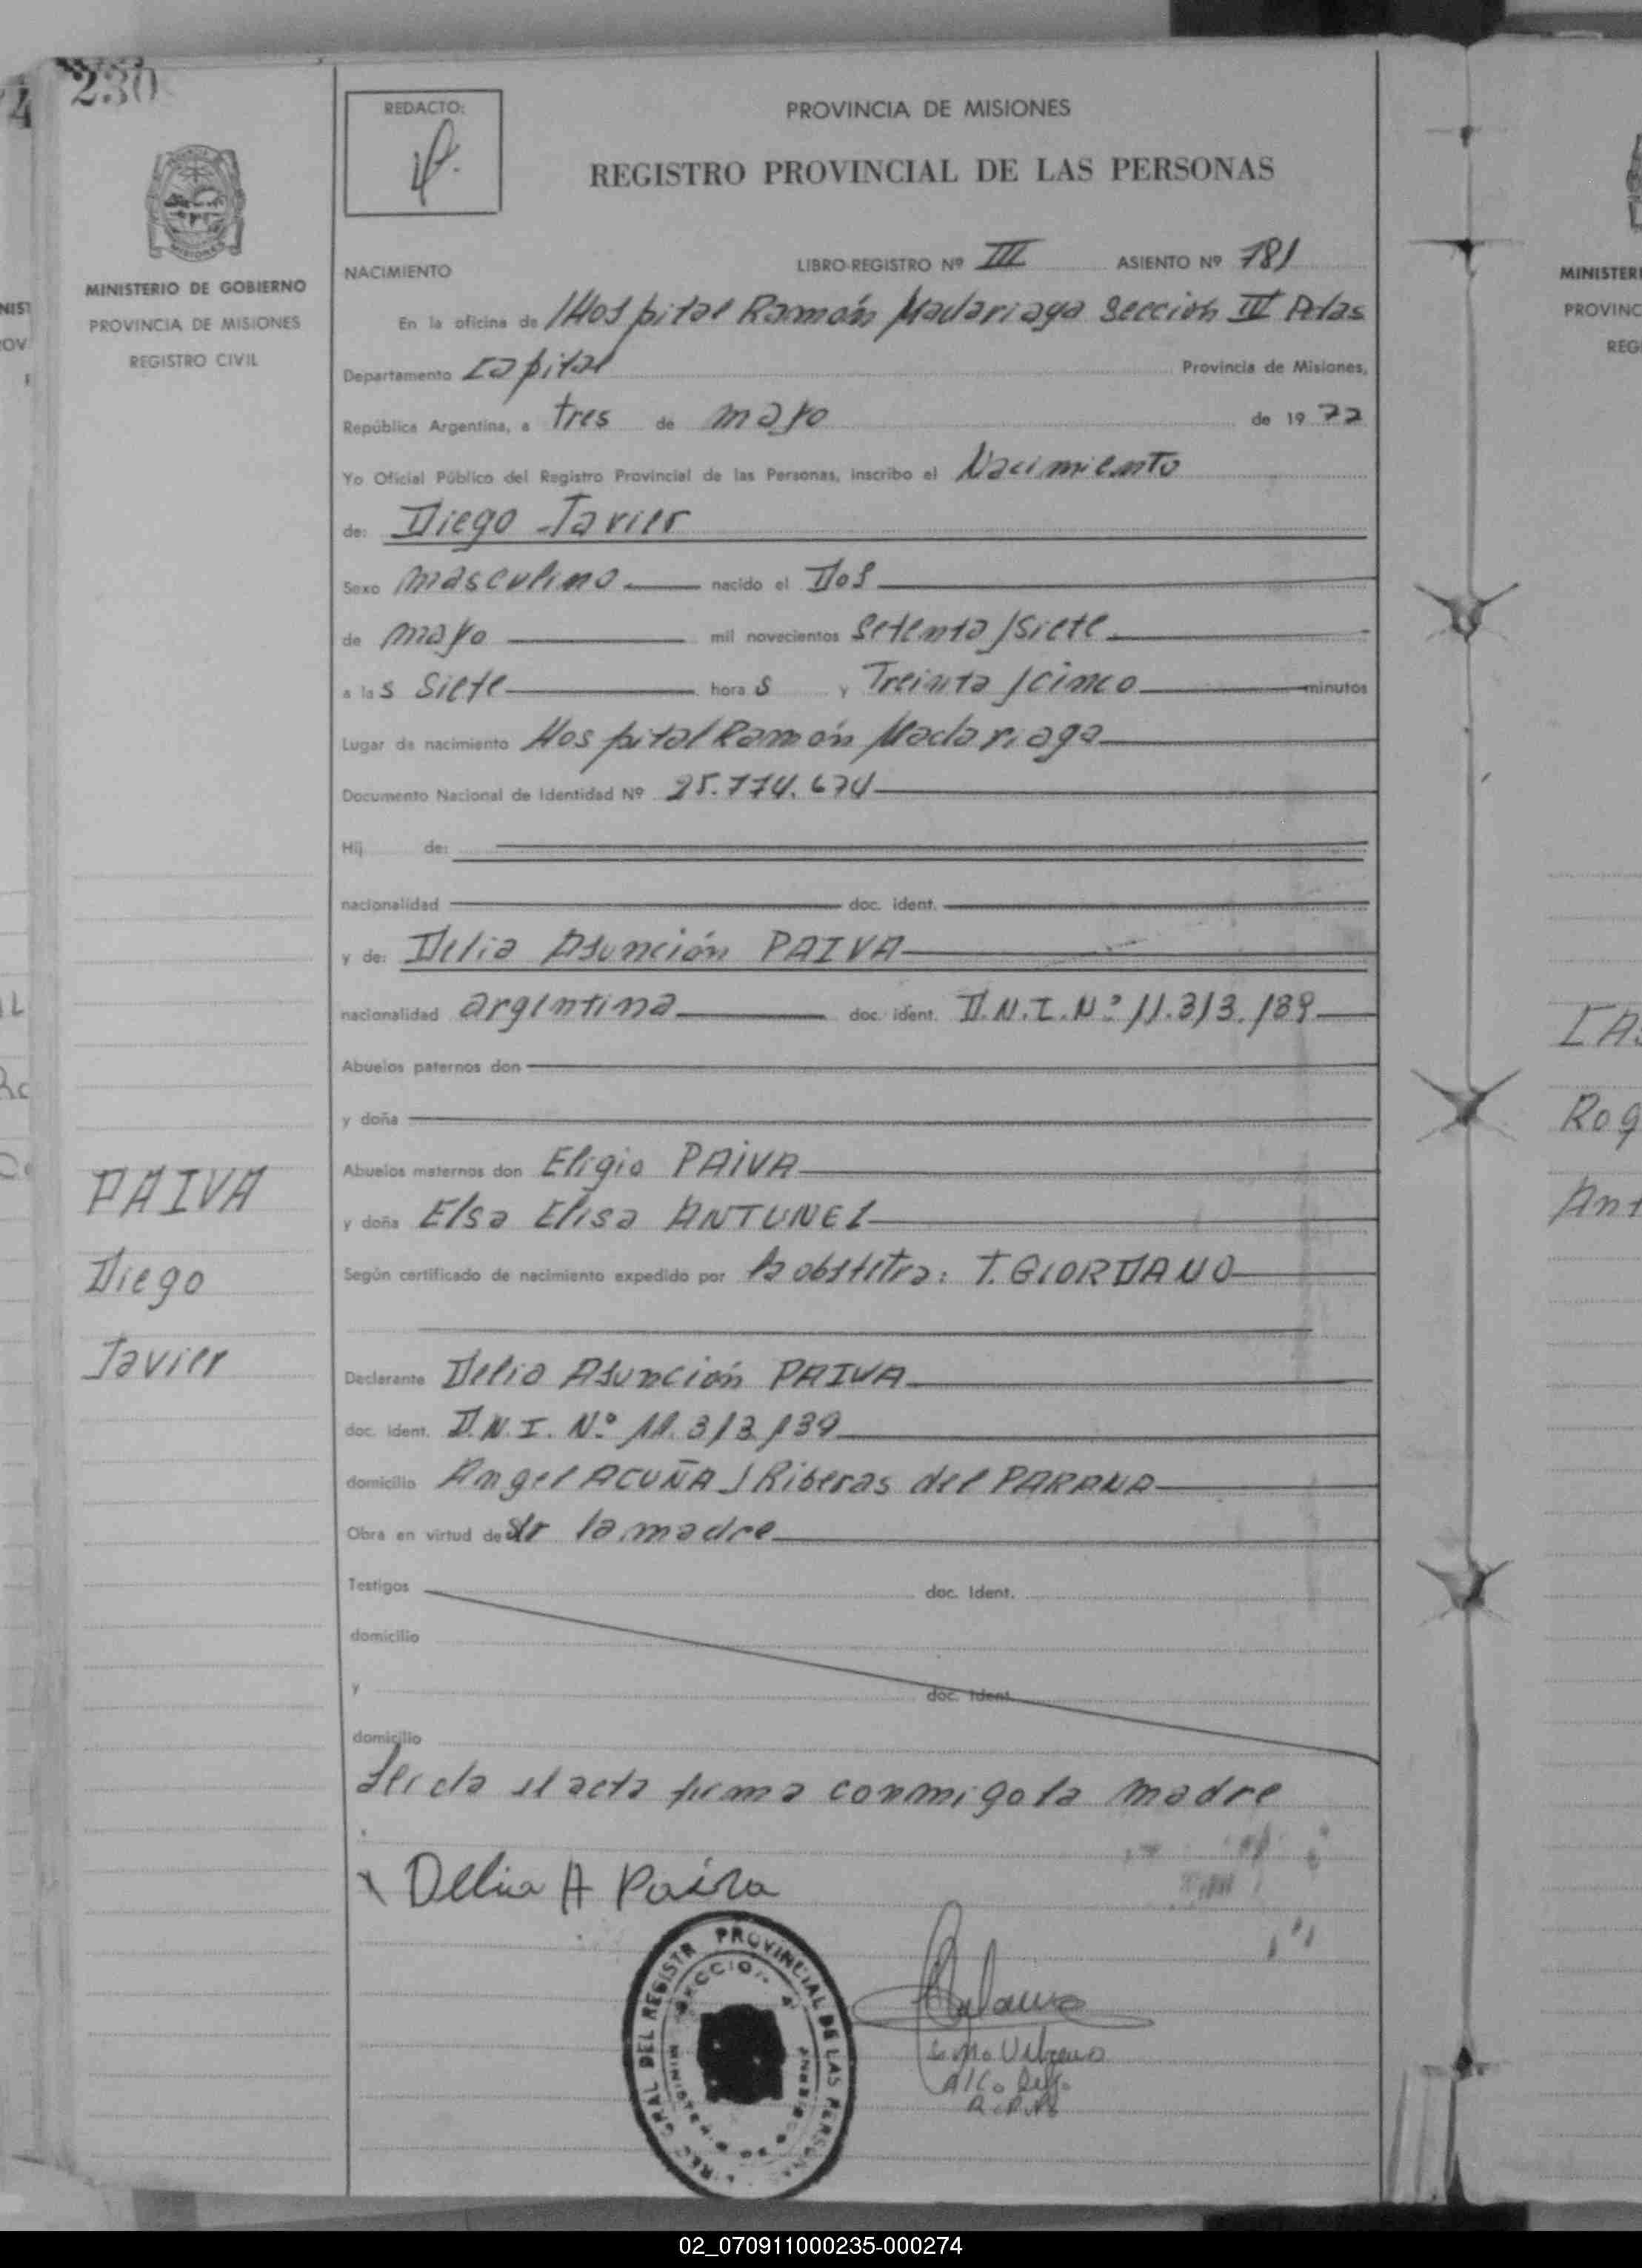 230
REDACTO:
PROVINCIA DE MISIONES
REGISTRO PROVINCIAL DE LAS PERSONAS
MINISTERIO DE GOBIERNO
PROVINCIA DE MISIONES
REGISTRO CIVIL
NACIMIENTO
LIBRO-REGISTRO Nº III ASIENTO Nº 781
En la oficina de Hospital Ramón Madariaga Sección IV Pdas
Departamento Capital Provincia de Misiones,
República Argentina, a tres de mayo de 19 77
Yo Oficial Público del Registro Provincial de las Personas, inscribo el Nacimiento
de: Diego Javier
Sexo masculino nacido el Dos
de mayo mil novecientos Setenta y Siete
a las Siete horas y Treinta y cinco minutos
Lugar de nacimiento Hospital Ramón Madariaga
Documento Nacional de Identidad Nº 25.774.674
Hij de:
nacionalidad doc. ident.
y de: Delia Asunción PAIVA
nacionalidad argentina doc. ident. D.N.I. Nº 11.313.139
Abuelos paternos don
y doña
Abuelos maternos don Eligio PAIVA
y doña Elsa Elisa ANTUNEZ
Según certificado de nacimiento expedido por la obstetra: T. GIORDANO
Declarante Delia Asunción PAIVA
doc. ident. D.N.I. Nº 11.313.139
domicilio Angel ACUÑA y Riberas del PARANA
Obra en virtud de ser la madre
Testigos doc. Ident.
domicilio
y doc. Ident.
domicilio
Leida el acta firma conmigo la madre
PAIVA
Diego
Javier
Delia A Paiva
GRAL DEL REGISTR PROVINCIAL DE LAS PERSONAS
SECCION 4
02_070911000235-000274